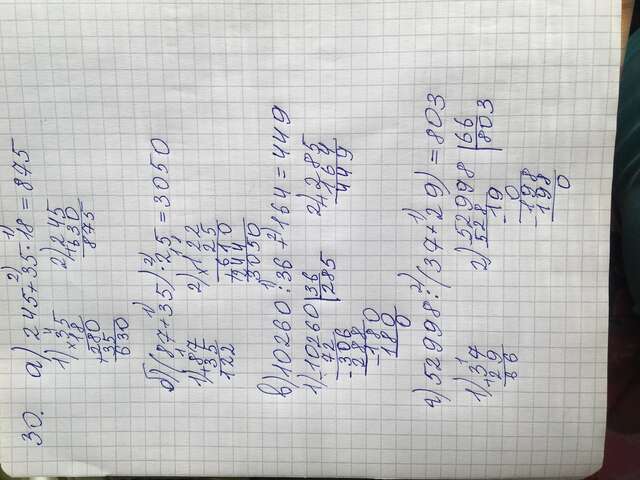 30. а) 245+35·18=875
1) 35 2) 245
×18 +630
280 875
+35
630
б) (87+35)·25=3050
1) 87 2) ×122
+35 25
122 610
+244
3050
в) 10260:36+164=449
1) 10260 |36 2) 285
72 285 +164
306 449
-288
-180
180
0
г) 52998:(37+29)=803
1) 37 2) 52998 |66
+29 528 803
66 -19
0
-198
198
0